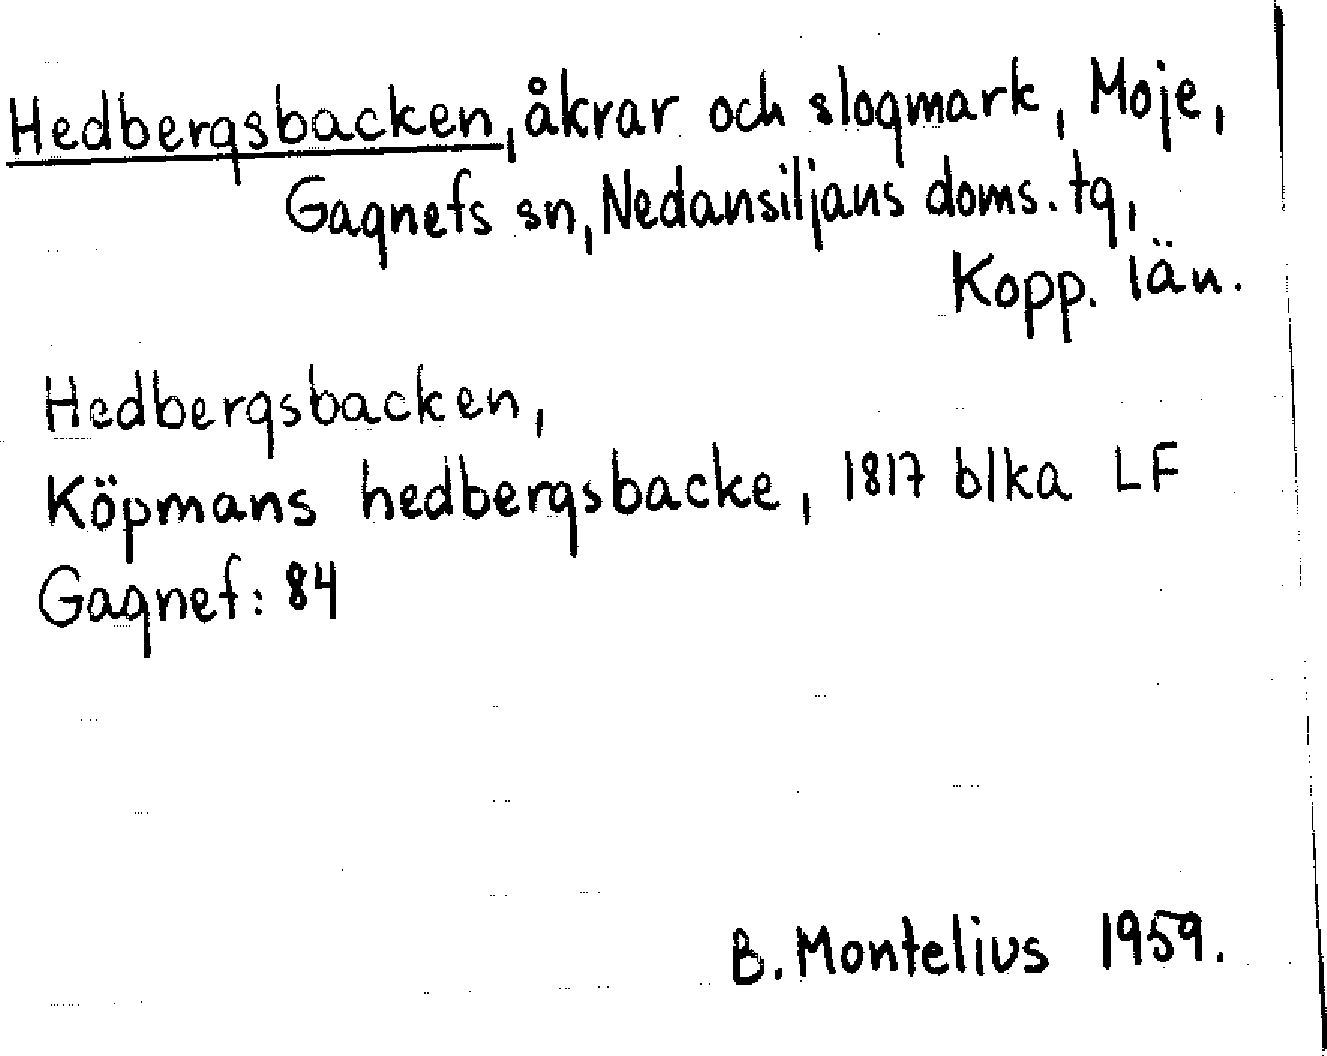 Hedbergsbacken, åkrar och slogmark, Moje,
Gagnefs sn, Nedansiljans doms. tg,
Kopp. län.
Hedbergsbacken,
Köpmans hedbergsbacke, 1817 blka LF
Gagnef: 84
B. Montelius 1959.